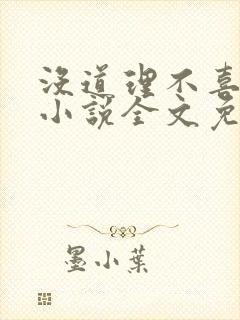 没道理不喜
小说全文免
墨小葉